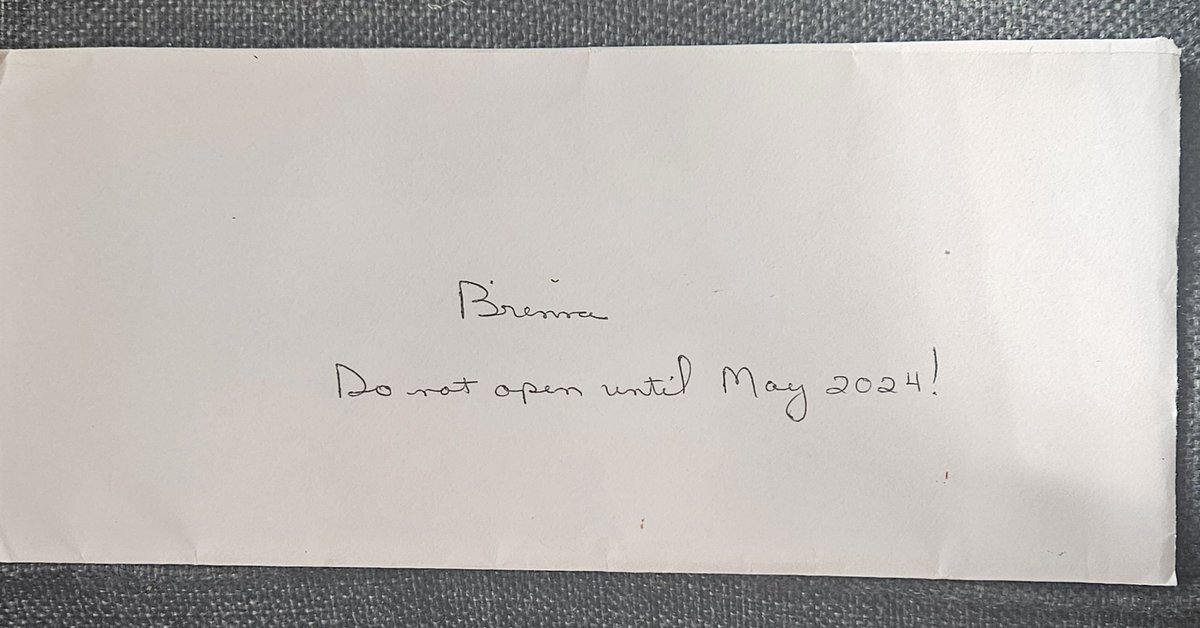 Brenna
Do not open until May 2024!